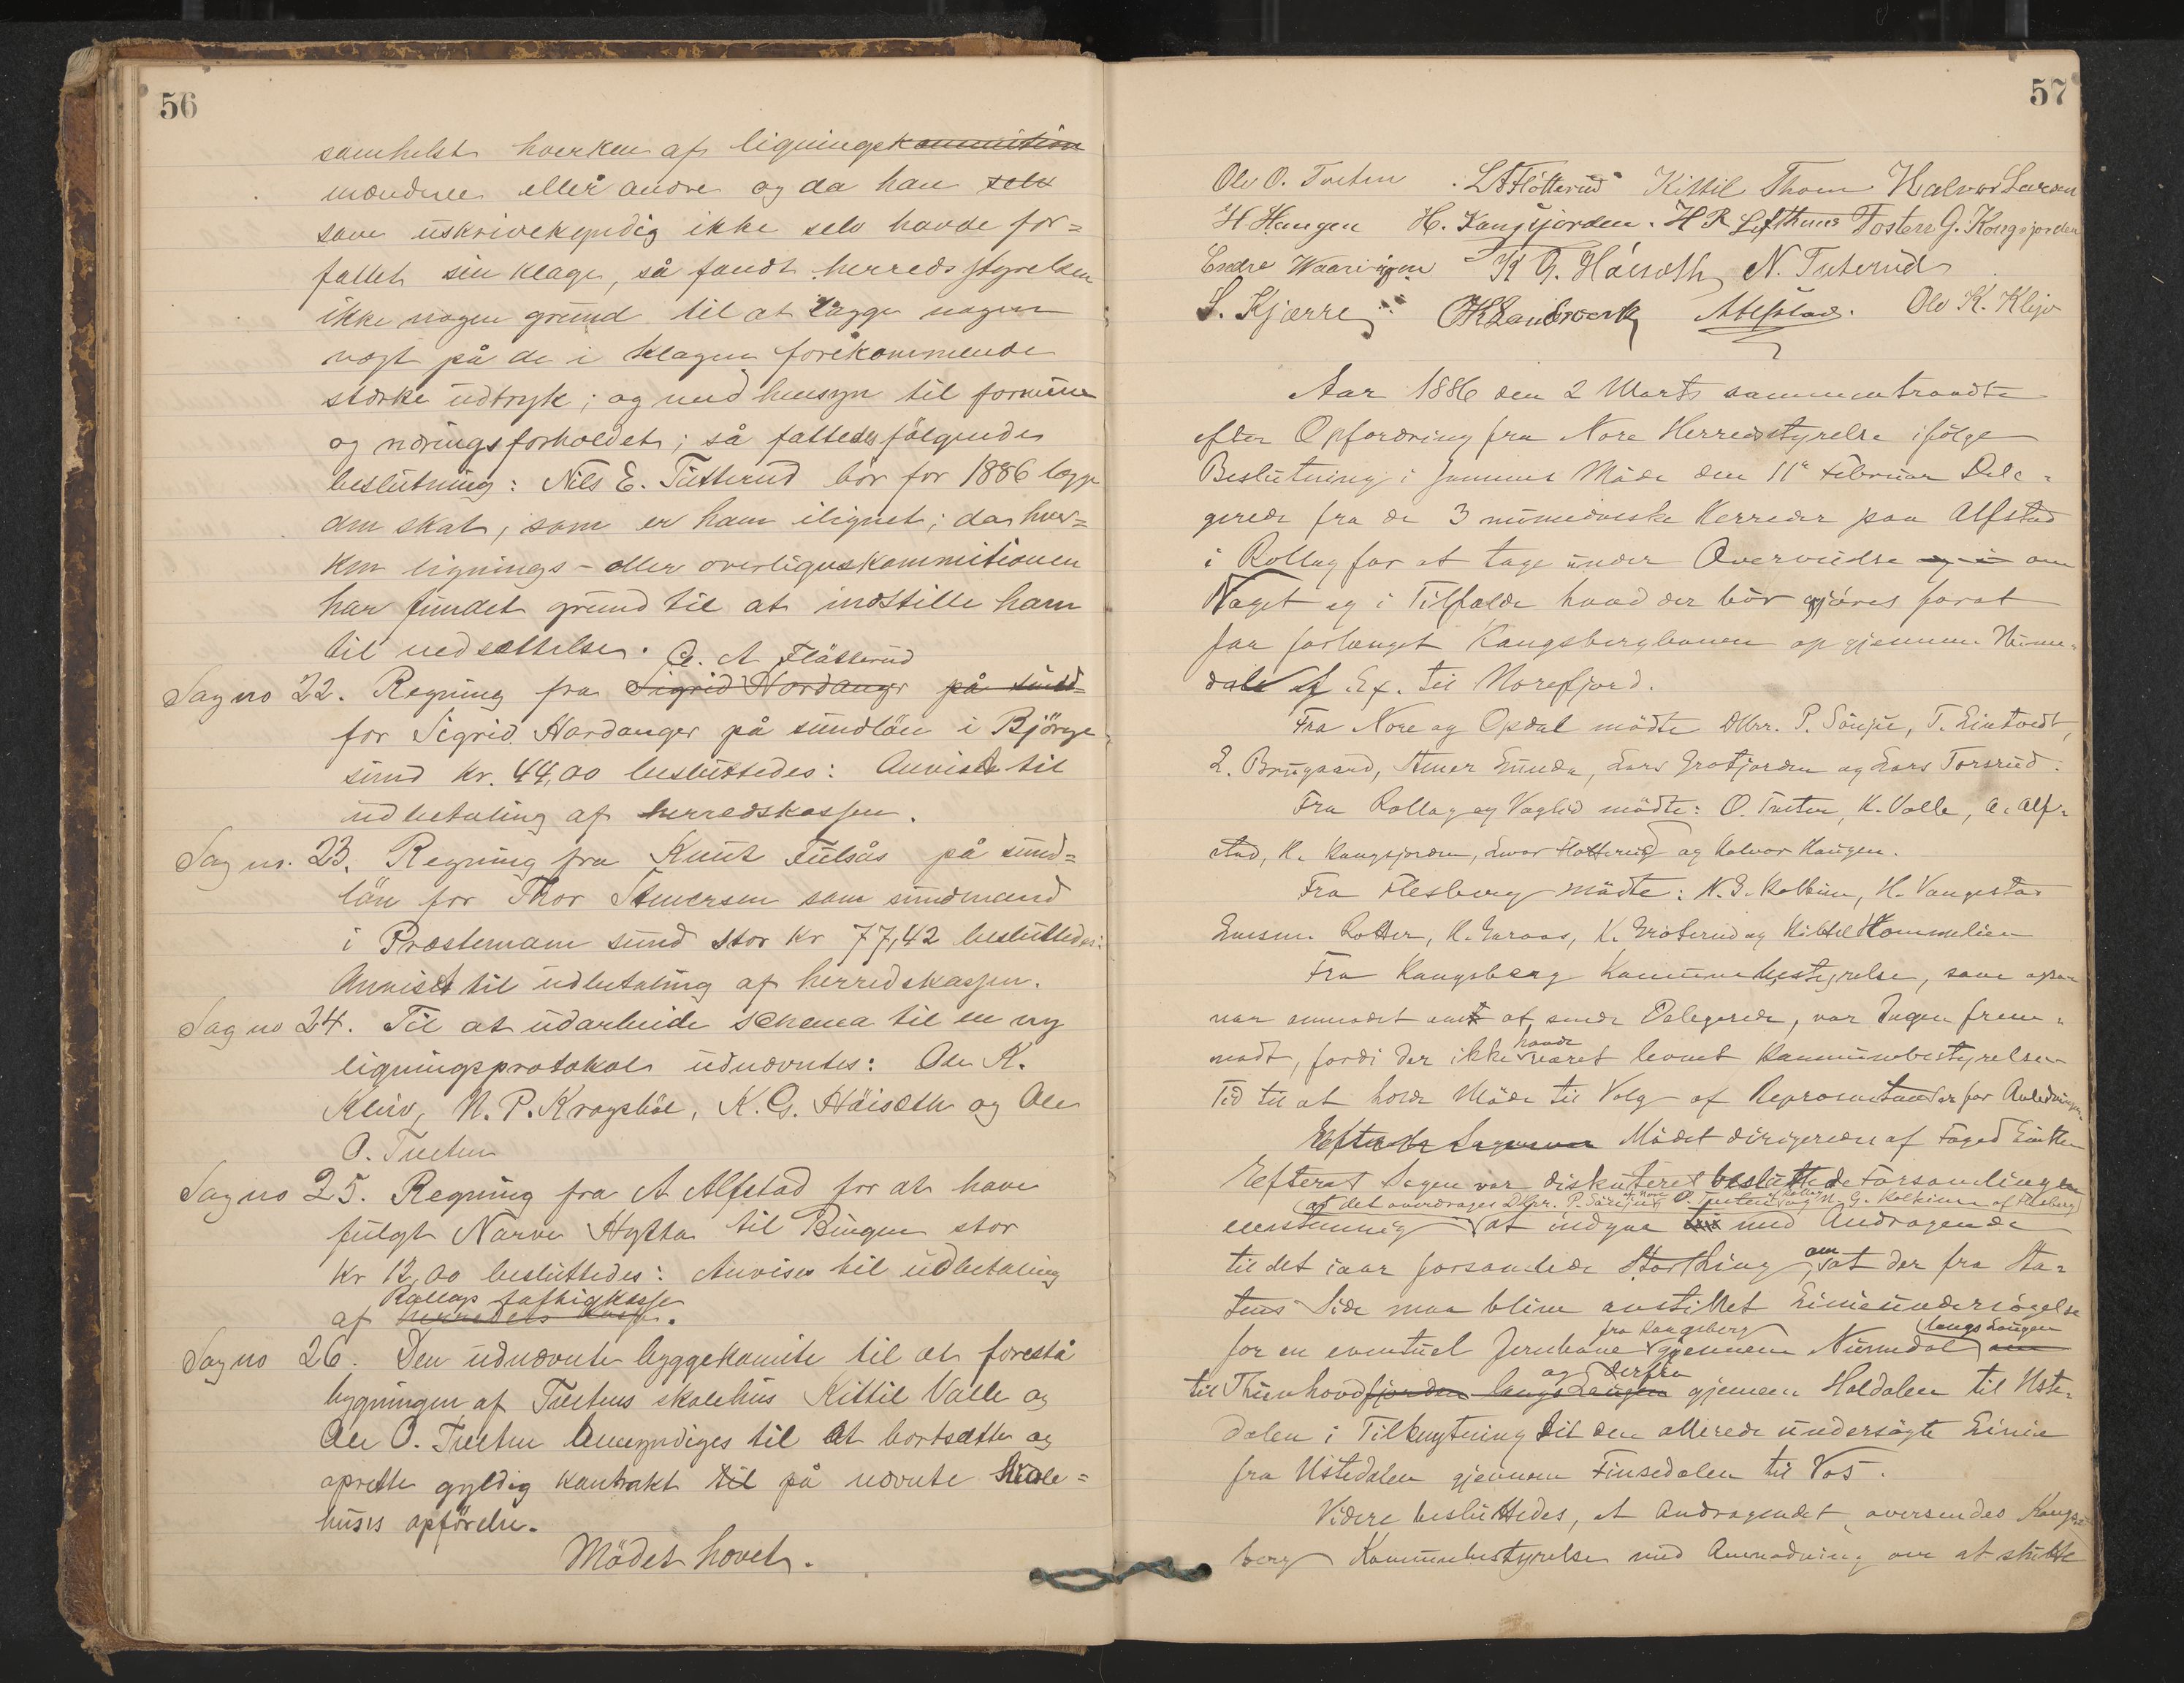 56
somhelst hverken af ligningskommition
mændene eller andre og da han selv
som uskrivekyndig ikke selv havde for=
fattet sin klage, så fandt herredsstyrelsen
ikke nogen grund til at lægge nogen
vægt på de i klagen forekommende
stærke udtryk; og med hensyn til formue
og næringsforholdet; så fattedes følgende
beslutning: Nils E. Tutterud bør for 1886 lægge
den skat, som er ham ilignet; da hver=
ken lignings- eller overligningskommitionen
har fundet grund til at indstille ham
til nedsættelse.
G. A Flåtterud
Sag no 22. Regning fra Sigrid Hardanger på sund=
for Sigrid Hardanger på sundløn i Björge
sund kr. 44,00 besluttedes: Anvises til
udbetaling af herredskassen.
Sag no. 23. Regning fra Knut Fulsås på sund=
løn for Thor Stenersen som sundmand
i Præstemoen sund stor kr 77,42 besluttedes:
Anvises til udbetaling af herredskassen.
Sag no 24. Til at udarbeide schema til en ny
ligningsprotokol udnævntes: Ole K.
Kleiv, N. P. Kragsböl, K. G. Häiseth og Ole
O. Tveten
Sag no 25. Regning fra A Alfstad for at have
fulgt Narve Hytta til Bingen stor
kr 12,00 besluttedes: Anvises til udbetaling
Rollags fattigkasse
af herredets kasse.
Sag no 26. Den udnævnte byggekomite til at forestå
bygningen af Tvetens skolehus Kittil Valle og
Ole O. Tveten bemyndiges til at bortsætte og
oprette gyldig kontrakt til på nævnte skole=
huses opførelse.
Mødet hævet.
57
Ole O. Tveten L A Flötterud Kittil Thom Halvor Larsen
H Haugen H. Kongsjorden. H R Lofthuus Tosten G. Kongsjorden
Endre Waaringen K G. Häiseth N. Tuterud
S. Kjærre OHLandsverk AAlfstad. Ole K. Klejv
Aar 1886 den 2 Marts sammentraadte
efter Opfordring fra Nore Herredsstyrelse ifølge
Beslutning i sammes Møde den 11te Februar Dele=
gerede fra de 3 numedalske Herreder paa Alfstad
i Rollag for at tage under Overveielse og i om
Noget og i Tilfælde hvad der bør gjøres forat
faa forlænget Kongsbergbanen op gjennem Nume=
dal af Ex. til Norefjord.
Fra Nore og Opdal mødte DHrr. P. Sönju, T. Eintvedt,
E. Brugaard, Stener Lunde, Lars Grotjorden og Lars Torsrud.
Fra Rollag og Veglid mødte: O. Tveten, K. Valle, A. Alf=
stad, H. Kongsjorden, Iwar Flötterud og Halvor Haugen.
Fra Flesberg mødte: N. G. Kolkinn, H. Vangestad
Gunm. Rotter, K. Garaas, K. Gröterud og Kittil Hommelien
Fra Kongsberg Kommunebestyrelse, som ogsaa
var anmodet om at sende Delegerede, var Ingen frem=
mødt, fordi der ikke havde været levnet Kommunebestyrelsen
Tid til at holde Møde til Valg af Repræsentanter for Anledningen.
Efterat Sagen var Mødet dirigeredes af Foged Linthoe
Efterat Sagen var diskuteret besluttede Forsamlingen
at det overdrages DHrr. P. Sönju af Nore O. Tveten af Rollag og N. G. Kolkinn af Flesberg
eenstemmig at indgaa med Andragende
til det iaar forsamlede Storthing om at der fra Sta=
tens Side maa blive anstillet Linieundersøgelse
for en eventuel Jernbane fra Kongsberg gjennem Numedal langs Laagen
til Thunhovdfjorden langs Laagen og derfra gjennem Haldalen til Uste=
dalen i Tilknytning til den allerede undersøgte Linie
fra Ustedalen gjennem Finsedalen til Vos.
Videre besluttedes, at Andragendet oversendes Kongs=
berg Kommunebestyrelse med Anmodning om at støtte